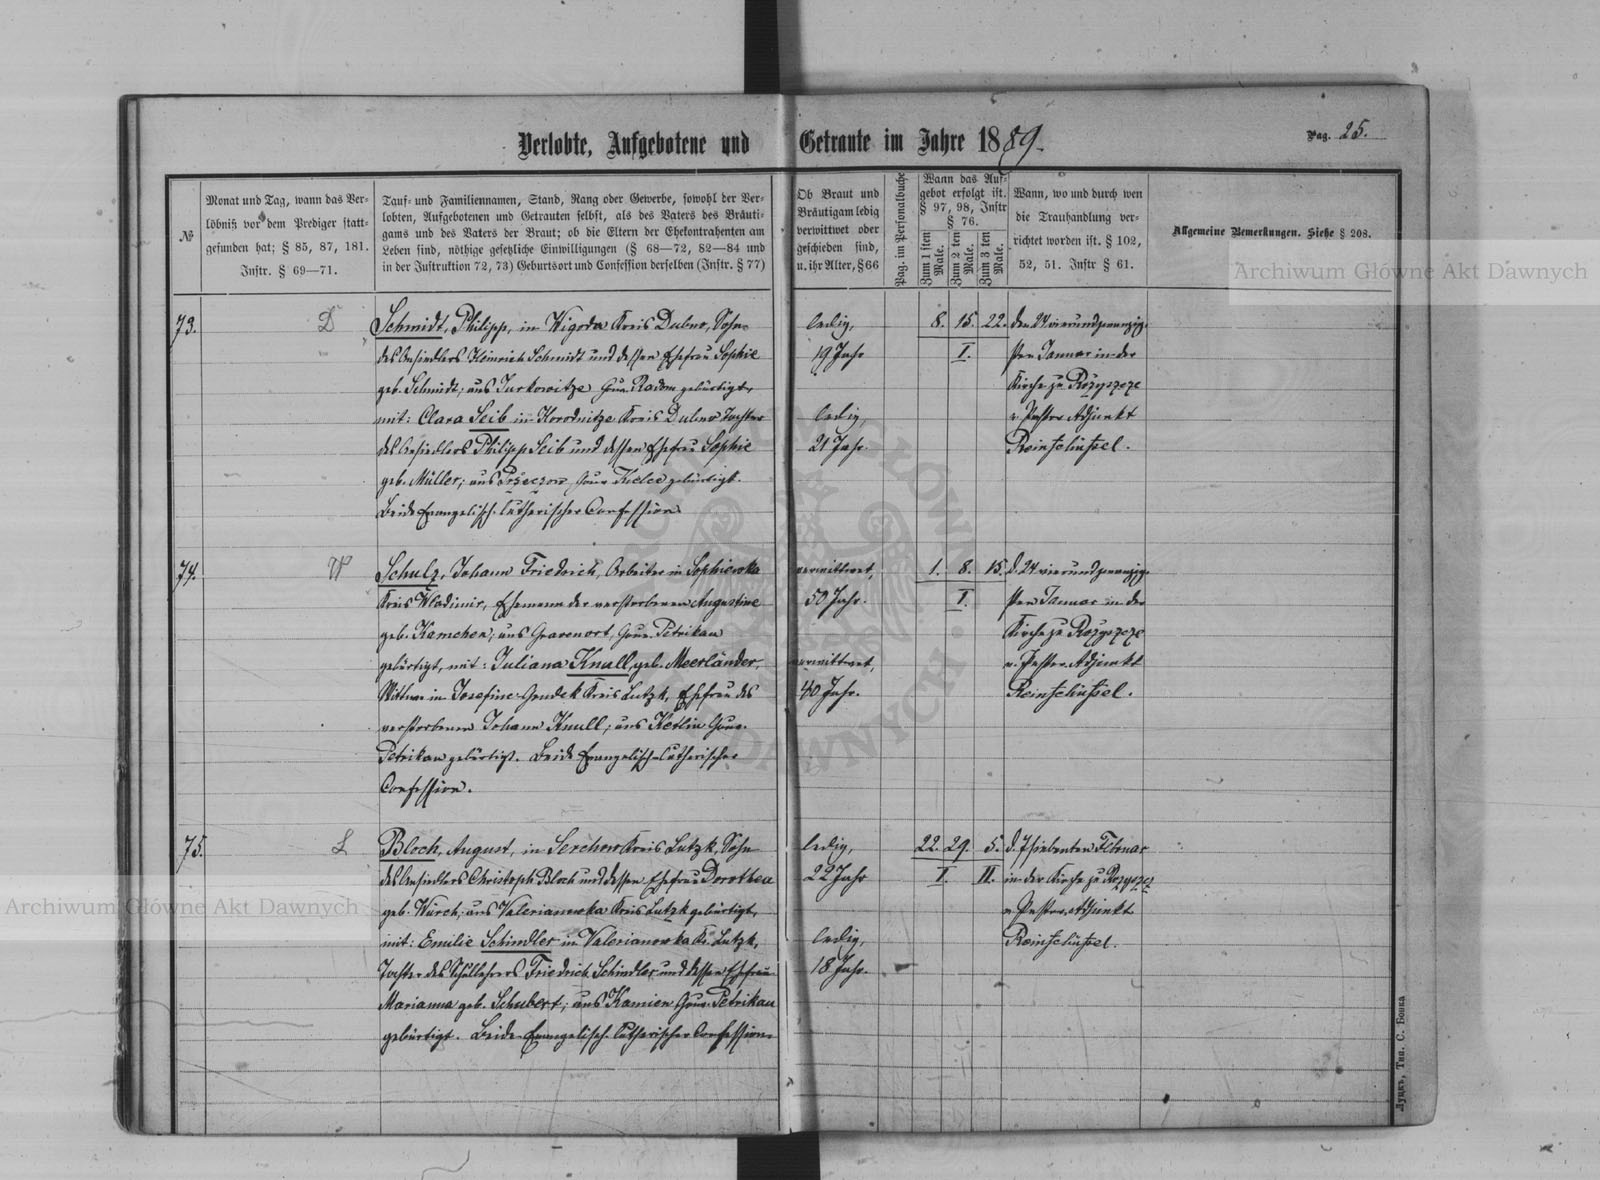 Verlobte, Aufgebotene und Getraute im Jahre 1889.
Pag. 25.
№
Monat und Tag, wann das Ver-
löbniß vor dem Prediger statt-
gefunden hat; § 85, 87, 181.
Instr. § 69—71.
Tauf- und Familiennamen, Stand, Rang oder Gewerbe, sowohl der Ver-
lobten, Aufgebotenen und Getrauten selbst, als des Vaters des Bräuti-
gams und des Vaters der Braut; ob die Eltern der Ehekontrahenten am
Leben sind, nöthige gesetzliche Einwilligungen (§ 68—72, 82—84 und
in der Justruktion 72, 73) Geburtsort und Confession derselben (Instr. § 77)
Ob Braut und
Bräutigam ledig
verwittwet oder
geschieden sind,
u. ihr Alter, § 66
Pag. im Personalbuche
Wann das Auf-
gebot erfolgt ist.
§ 97, 98, Instr
§ 76.
Zum 1 sten Male.
Zum 2 ten Male.
Zum 3 ten Male.
Wann, wo und durch wen
die Trauhandlung ver-
richtet worden ist. § 102,
52, 51. Instr § 61.
Allgemeine Bemerkungen. Siehe § 208.
Archiwum Główne Akt Dawnych
73.
D
Schmidt, Philipp, in Wigoda Kreis Dubno, Sohn
des Ansiedlers Heinrich Schmidt und dessen Ehefrau Sophie
geb. Schmidt; aus Jurkowitze Gouv. Radom gebürtigt,
mit: Clara Seib in Horodnitze Kreis Dubno Tochter
des Ansiedlers Philipp Seib und dessen Ehefrau Sophie
geb. Müller; aus Gouv. Kielce gebürtigt.
Beide Evangelisch-lutherischer Confession.
ledig,
19 Jahr
ledig,
21 Jahr.
8. 15. 22.
I.
den 24 vierundzwanzig-
sten Januar in der
Kirche zu Rożyszcze
v. Pastor Adjunkt
Reinschüssel.
74.
W
Schulz, Johann Friedrich, Arbeiter in Sophiewka
Kreis Wladimir, Ehemann der verstorbenen Augustine
geb. Kamchen; aus Gravenort, Gouv. Petrikau
gebürtigt, mit: Juliana Knull, geb. Meerländer,
Wittwe in Josefine-Gendek Kreis Lutzk, Ehefrau des
verstorbenen Johann Knull; aus Ketlin Gouv.
Petrikau gebürtigt. Beide Evangelisch-lutherischer
Confession.
verwittwet,
50 Jahr.
verwittwet,
40 Jahr.
1. 8. 15.
I.
d. 24 vierundzwanzig-
sten Januar in der
Kirche zu Rożyszcze
v. Pastor Adjunkt
Reinschüssel.
75.
L
Bloch, August, in Serchow Kreis Lutzk, Sohn
des Ansiedlers Christoph Bloch und dessen Ehefrau Dorothea
geb. Würch; aus Valerianowka Kreis Lutzk gebürtigt,
mit: Emilie Schindler in Valerianowka Kr. Lutzk,
Tochter des Schullehrers Friedrich Schindler und dessen Ehefrau
Marianna geb. Schubert; aus Kamien Gouv. Petrikau
gebürtigt. Beide Evangelisch-lutherischer Confession.
ledig,
22 Jahr
ledig,
18 Jahr.
22. 29. 5.
I. II.
d. 7 siebenten Februar
in der Kirche zu
v. Pastor Adjunkt
Reinschüssel.
Archiwum Główne Akt Dawnych
Луцкъ, Тип. С. Бонка
ARCHIWUM GŁÓWNE AKT DAWNYCH